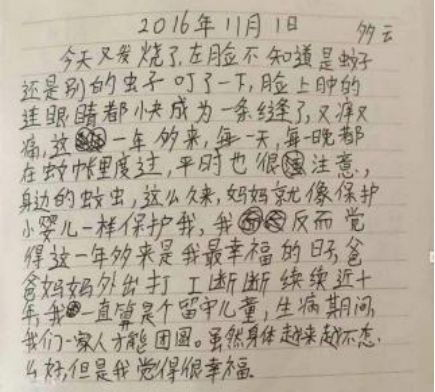 2016年11月1日 多云
今天又发烧了,左脸不知道是蚊子
还是别的虫子叮了一下,脸上肿的
连眼睛都快成为一条缝了,又痒又
痛,这一年多来,每一天,每一晚都
在蚊帐里度过,平时也很注意,
身边的蚊虫,这么久来,妈妈就像保护
小婴儿一样保护我,我反而觉
得这一年多来是我最幸福的日子,爸
爸妈妈外出打工断断续续近十
年,我一直算是个留守儿童,生病期间,
我们一家人才能团圆。虽然身体越来越不怎
么好,但是我觉得很幸福.